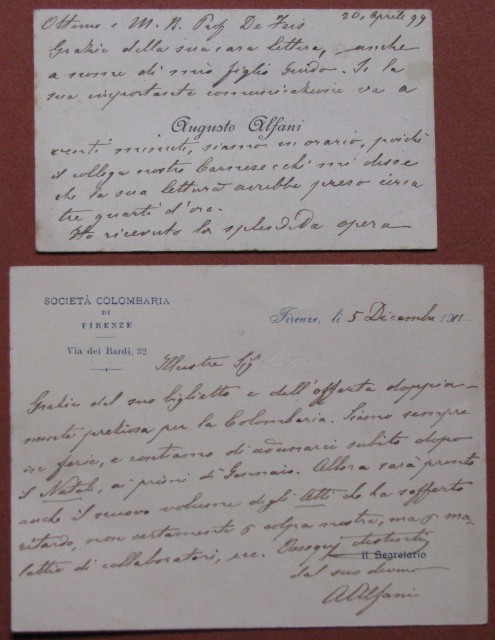 Ottimo e M. R. Prof De Feis
20. Aprile 99
Grazie della sua cara lettera, anche
a nome di mio figlio Guido. Se la
sua importante comunicazione va a
Augusto Alfani
venti minuti, siamo in orario, poiché
il collega nostro Carnesecchi mi disse
che la sua lettura avrebbe preso circa
tre quarti d'ora.
Ho ricevuto la splendida opera
SOCIETÀ COLOMBARIA
DI
FIRENZE
Via dei Bardi, 32
Firenze, li 5 Dicembre
Illustre Sig
Grazie del suo biglietto e dell'offerta doppia-
mente preziosa per la Colombaria. Siamo sempre
in ferie, e contiamo di adunarci subito dopo
il Natale, a' primi di Gennaio. Allora sarà pronto
anche il nuovo volume degli Atti che ha sofferto
ritardo, non certamente p colpa nostra, ma p ma-
lattie di collaboratori, ecc. Ossequi distinti
Il Segretario
dal suo devmo
AAlfani